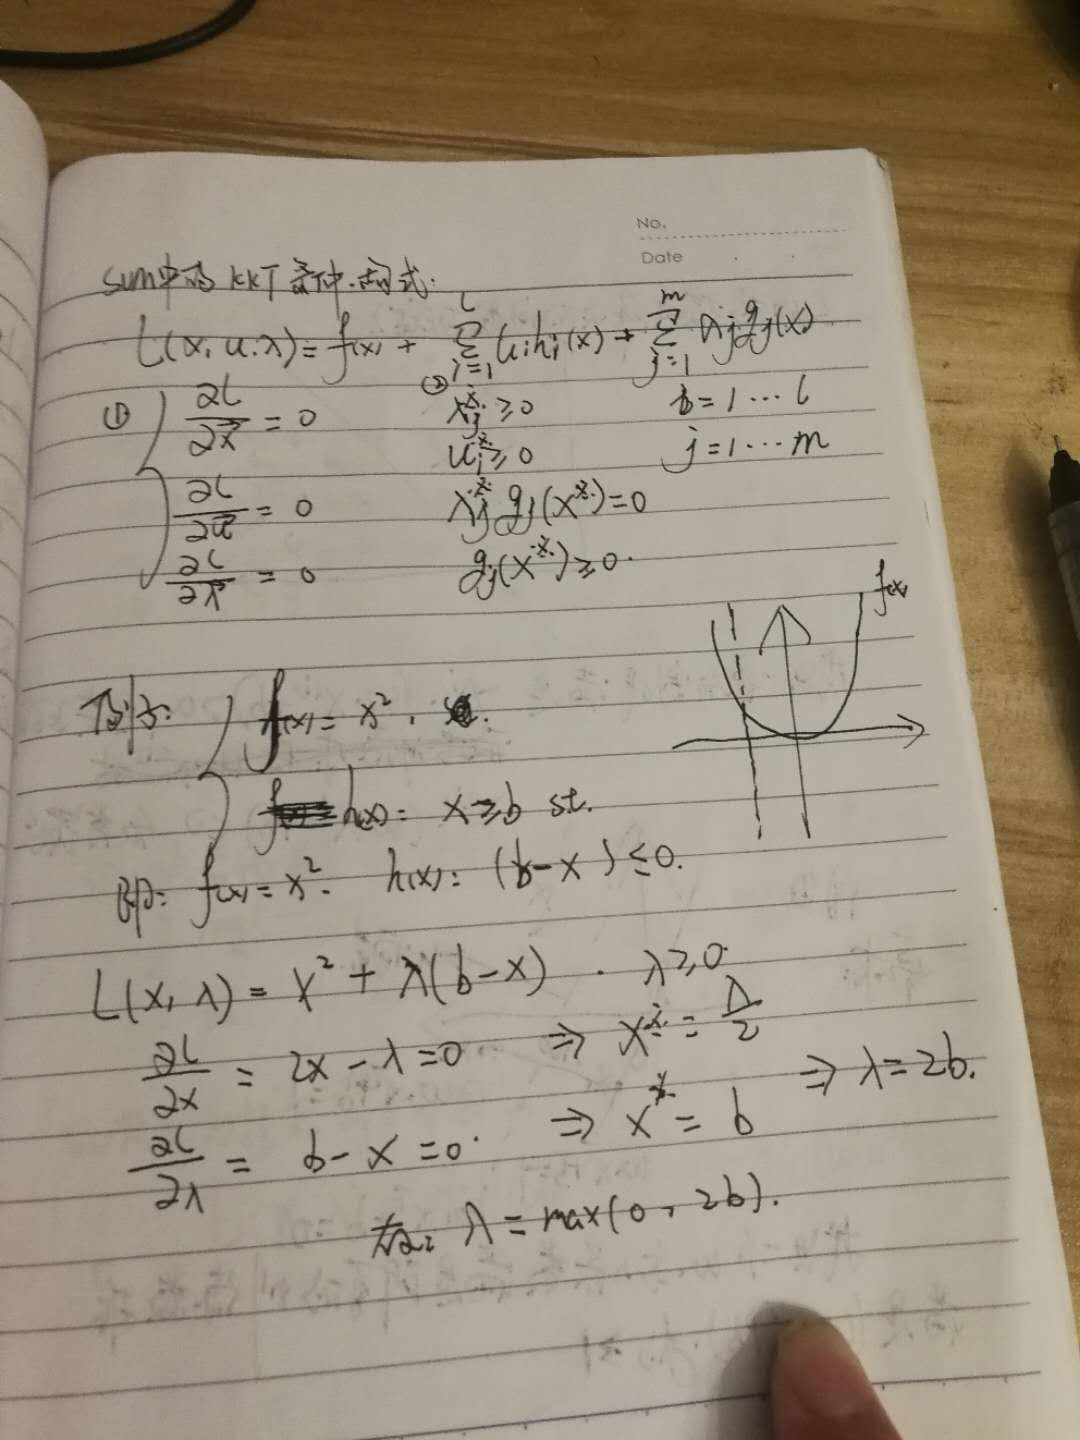 No.
Date
svm中的KKT条件.公式:
L(x, u, λ) = f(x) + ∑_{i=1}^{l} u_i h_i(x) + ∑_{j=1}^{m} λ_j g_j(x)
① { ∂L/∂x⃗ = 0 ② λ_j^* ≥ 0 i = 1 ⋯ l
u_i^* ≥ 0 j = 1 ⋯ m
∂L/∂u⃗ = 0 λ_j^* g_j(x^*) = 0
∂L/∂λ⃗ = 0 g_j(x^*) ≥ 0.
f(x)
例子: { f(x) = x².
h(x) = x ≥ b st.
即: f(x) = x². h(x) = (b - x) ≤ 0.
L(x, λ) = x² + λ(b - x) . λ ≥ 0.
∂L/∂x = 2x - λ = 0 ⇒ x^* = λ/2
∂L/∂λ = b - x = 0. ⇒ x^* = b ⇒ λ = 2b.
λ = max(0, 2b).